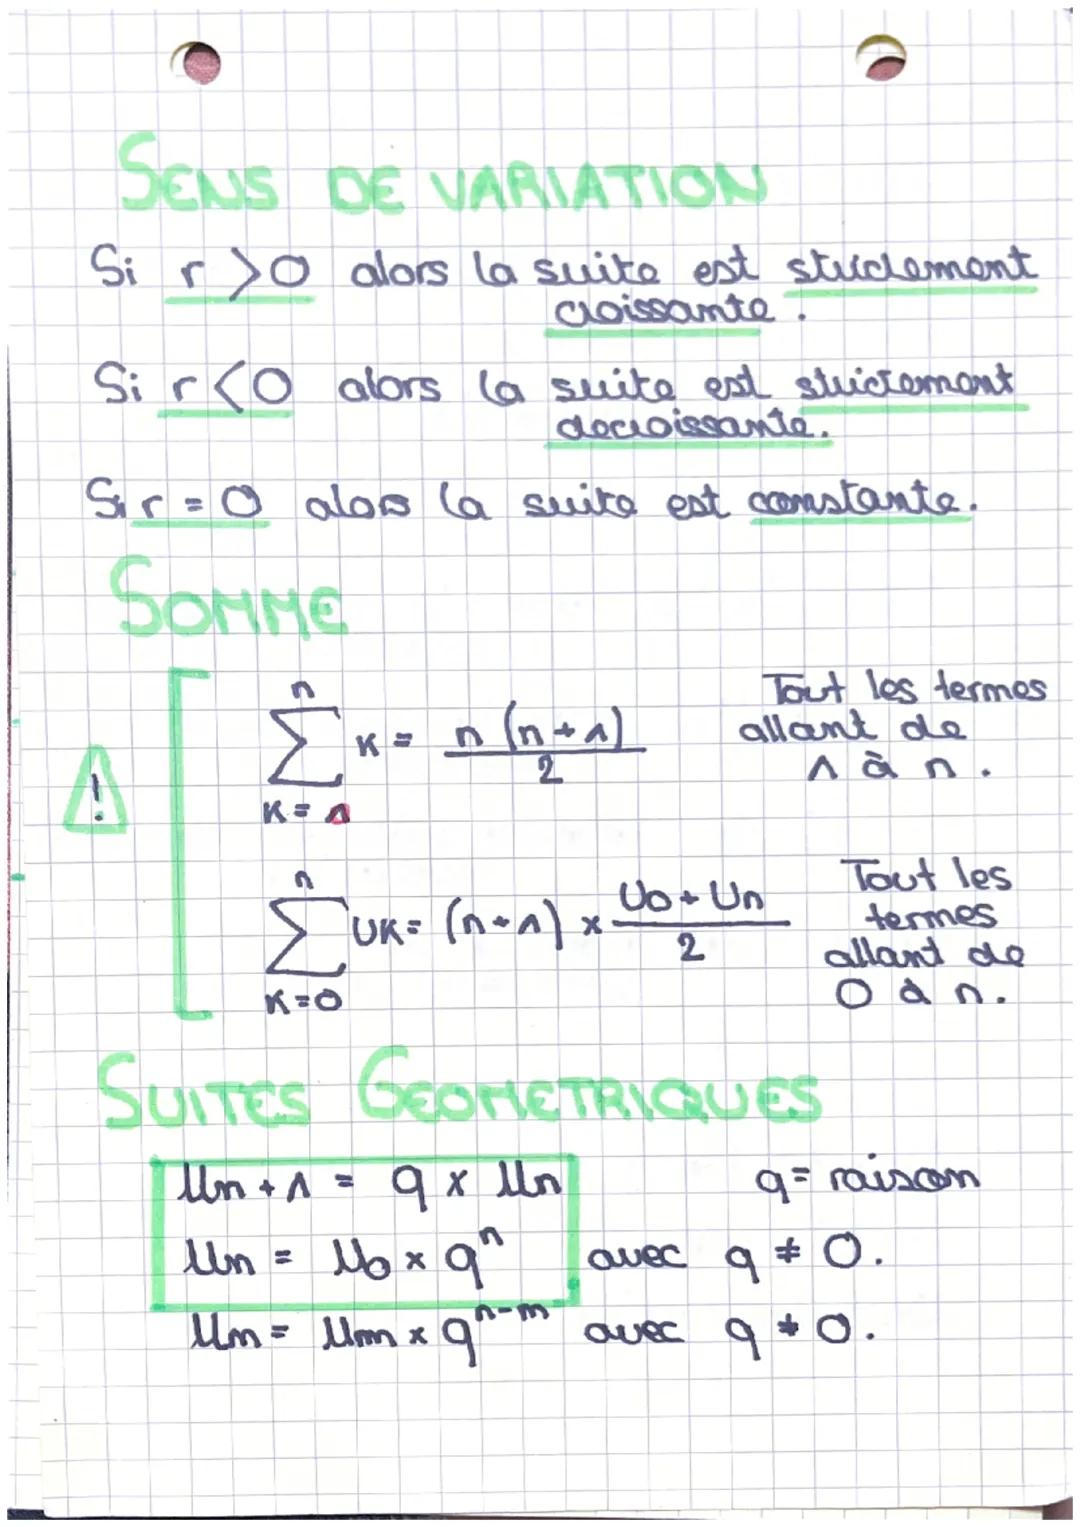 SENS DE VARIATION
Si r > 0 alors la suite est strictement
croissante.
Si r < 0 alors la suite est strictement
decroissante.
Si r = 0 alors la suite est constante.
SOMME
n
∑ K = n(n+1)/2
K = 1
Tout les termes
allant de
1 à n.
!
n
∑ UK = (n+1) × (U0 + Un)/2
K=0
Tout les
termes
allant de
0 à n.
SUITES GEOMETRIQUES
Un+1 = q × Un q = raison
Un = U0 × qⁿ avec q ≠ 0.
Un = Um × qⁿ⁻ᵐ avec q ≠ 0.